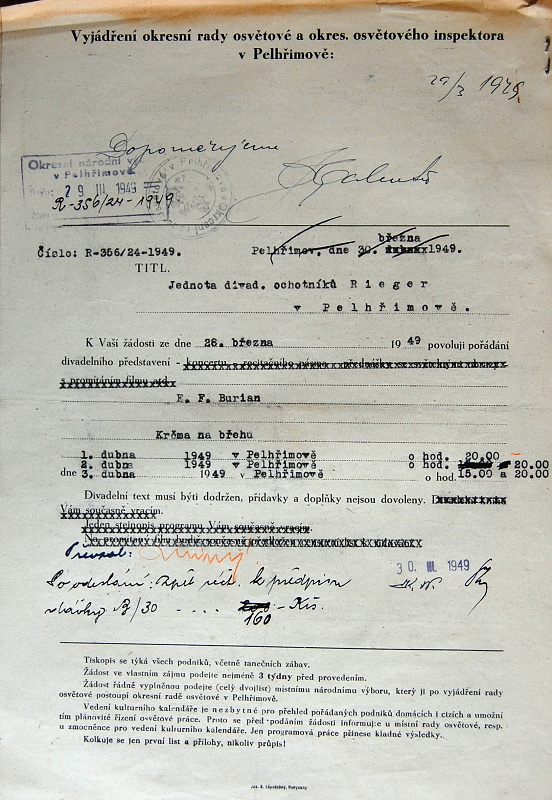 Vyjádření okresní rady osvětové a okres. osvětového inspektora
v Pelhřimově:
29/3 1949
Doporučujeme
Okresní národní v
v Pelhřimově
29 III 1949
R-356/24-1949
března
Číslo: R-356/24-1949. Pelhřimov, dne 30. 1949.
TITL.
Jednota divad. ochotníků Rieger
v Pelhřimově.
K Vaší žádosti ze dne 28. března 1949 povoluji pořádání
divadelního představení - koncertu - recitačního pásma - přednášky se
s promítáním filmu atd.
E. F. Burian
Krčma na břehu
1. dubna 1949 v Pelhřimově o hod. 20.00
2. dubna 1949 v Pelhřimově o hod. 20.00
dne 3. dubna 1949 v Pelhřimově o hod. 15.00 a 20.00
Divadelní text musí být dodržen, přídavky a doplňky nejsou dovoleny.
Vám současně vracím.
Jeden stejnopis programu Vám současně vracím.
Převzal:
30. III. 1949
Po odeslání: zpět k předpisu
dávky B/30 - - - - Kčs.
160
Tiskopis se týká všech podniků, včetně tanečních zábav.
Žádost ve vlastním zájmu podejte nejméně 3 týdny před provedením.
Žádost řádně vyplněnou podejte (celý dvojlist) místnímu národnímu výboru, který ji po vyjádření rady
osvětové postoupí okresní radě osvětové v Pelhřimově.
Vedení kulturního kalendáře je nezbytné pro přehled pořádaných podniků domácích i cizích a umožní
tím plánovité řízení osvětové práce. Proto se před podáním žádosti informuje u místní rady osvětové, resp.
u zmocněnce pro vedení kulturního kalendáře. Jen programová práce přinese kladné výsledky.
Kolkuje se jen první list a přílohy, nikoliv průpis!